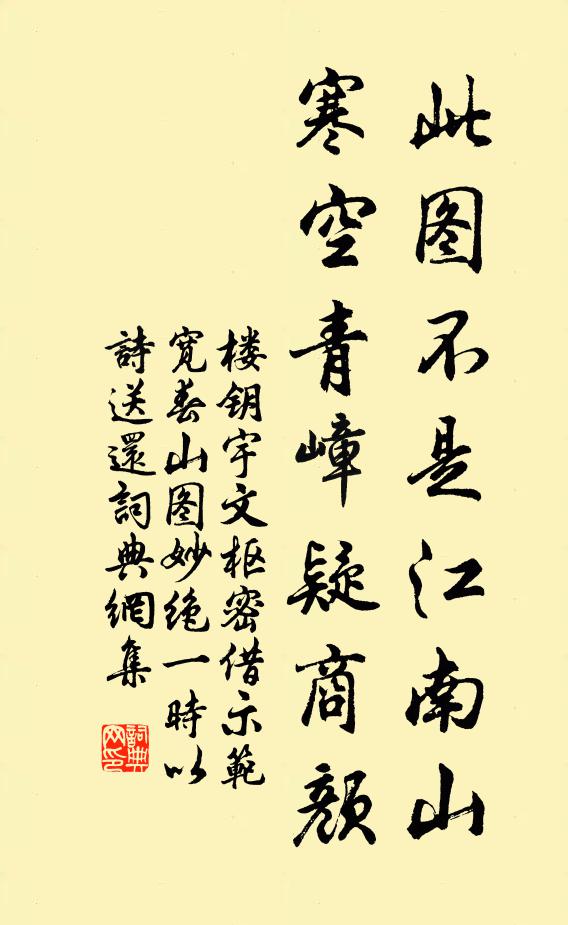 此图不是江南山
寒空青嶂疑商颜
楼钥宇文枢密借示範
寛春山图妙绝一時以
詩送還詞典網集
詞典网印